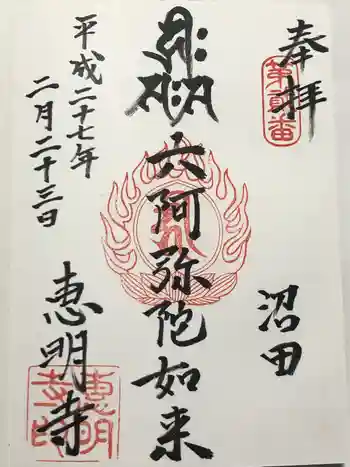 奉拝
第貳番
沼田
六阿弥陀如来
平成二十七年
二月二十三日
恵明寺